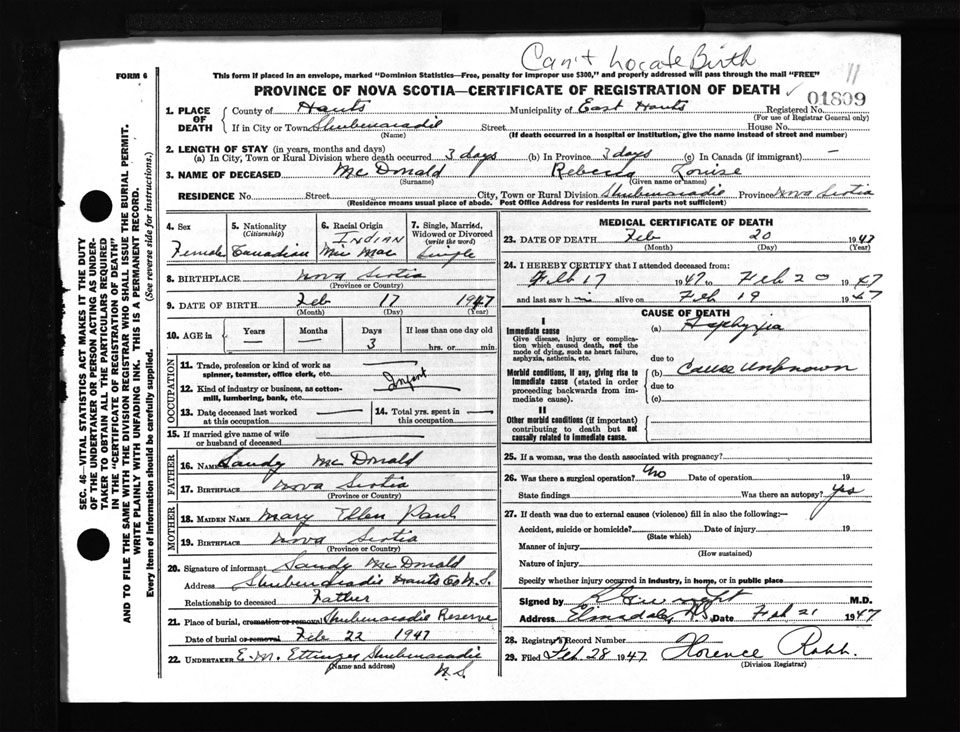 Can't Locate Birth
11
FORM 6
This form if placed in an envelope, marked "Dominion Statistics—Free, penalty for improper use $300," and properly addressed will pass through the mail "FREE"
PROVINCE OF NOVA SCOTIA—CERTIFICATE OF REGISTRATION OF DEATH
01809
1. PLACE OF DEATH County of Hants Municipality of East Hants Registered No.
(For use of Registrar General only)
If in City or Town Shubenacadie Street House No.
(Name) (If death occurred in a hospital or institution, give the name instead of street and number)
2. LENGTH OF STAY (in years, months and days)
(a) In City, Town or Rural Division where death occurred 3 days (b) In Province 3 days (c) In Canada (if immigrant) —
3. NAME OF DECEASED McDonald Rebecca Louise
(Surname) (Given name or names)
RESIDENCE No. Street City, Town or Rural Division Shubenacadie Province Nova Scotia
(Residence means usual place of abode. Post Office Address for residents in rural parts not sufficient)
4. Sex
Female
5. Nationality
(Citizenship)
Canadian
6. Racial Origin
INDIAN
Mic Mac
7. Single, Married, Widowed or Divorced
(write the word)
Single
8. BIRTHPLACE Nova Scotia
(Province or Country)
9. DATE OF BIRTH Feb 17 1947
(Month) (Day) (Year)
10. AGE in Years — Months — Days 3 If less than one day old
hrs. or min.
OCCUPATION
11. Trade, profession or kind of work as
spinner, teamster, office clerk, etc.
Infant
12. Kind of industry or business, as cotton-
mill, lumbering, bank, etc.
13. Date deceased last worked
at this occupation
14. Total yrs. spent in
this occupation
15. If married give name of wife
or husband of deceased
FATHER
16. NAME Sandy McDonald
17. BIRTHPLACE Nova Scotia
(Province or Country)
MOTHER
18. MAIDEN NAME Mary Ellen Paul
19. BIRTHPLACE Nova Scotia
(Province or Country)
20. Signature of informant Sandy McDonald
Address Shubenacadie Hants Co N.S.
Relationship to deceased Father
21. Place of burial, cremation or removal Shubenacadie Reserve
Date of burial or removal Feb 22 1947
22. UNDERTAKER E.M. Ettinger Shubenacadie
(Name and address) N.S.
MEDICAL CERTIFICATE OF DEATH
23. DATE OF DEATH Feb 20 1947
(Month) (Day) (Year)
24. I HEREBY CERTIFY that I attended deceased from:
Feb 17 1947 to Feb 20 1947
and last saw h alive on Feb 19 1947
CAUSE OF DEATH
I
Immediate cause
Give disease, injury or complica-
tion which caused death, not the
mode of dying, such as heart failure,
asphyxia, asthenia, etc.
(a) Asphyxia
due to
Morbid conditions, if any, giving rise to
immediate cause (stated in order
proceeding backwards from im-
mediate cause).
(b) Cause Unknown
due to
(c)
II
Other morbid conditions (if important)
contributing to death but not
causally related to immediate cause.
25. If a woman, was the death associated with pregnancy?
26. Was there a surgical operation? No Date of operation 19
State findings Was there an autopsy? Yes
27. If death was due to external causes (violence) fill in also the following:—
Accident, suicide or homicide? Date of injury 19
(State which)
Manner of injury
(How sustained)
Nature of injury
Specify whether injury occurred in industry, in home, or in public place
Signed by M.D.
Address Elmsdale, N.S. Date Feb 21 1947
28. Registrar's Record Number
29. Filed Feb. 28 1947 Florence Robb.
(Division Registrar)
SEC. 46—VITAL STATISTICS ACT MAKES IT THE DUTY
OF THE UNDERTAKER OR PERSON ACTING AS UNDER-
TAKER TO OBTAIN ALL THE PARTICULARS REQUIRED
IN THE "CERTIFICATE OF REGISTRATION OF DEATH"
AND TO FILE THE SAME WITH THE DIVISION REGISTRAR WHO SHALL ISSUE THE BURIAL PERMIT.
WRITE PLAINLY WITH UNFADING INK. THIS IS A PERMANENT RECORD.
Every item of information should be carefully supplied. (See reverse side for instructions.)